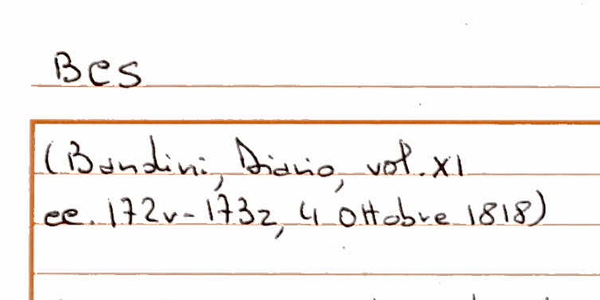 Bes
(Bandini, Diario, vol. XI
cc. 172v-173r, 4 Ottobre 1818)